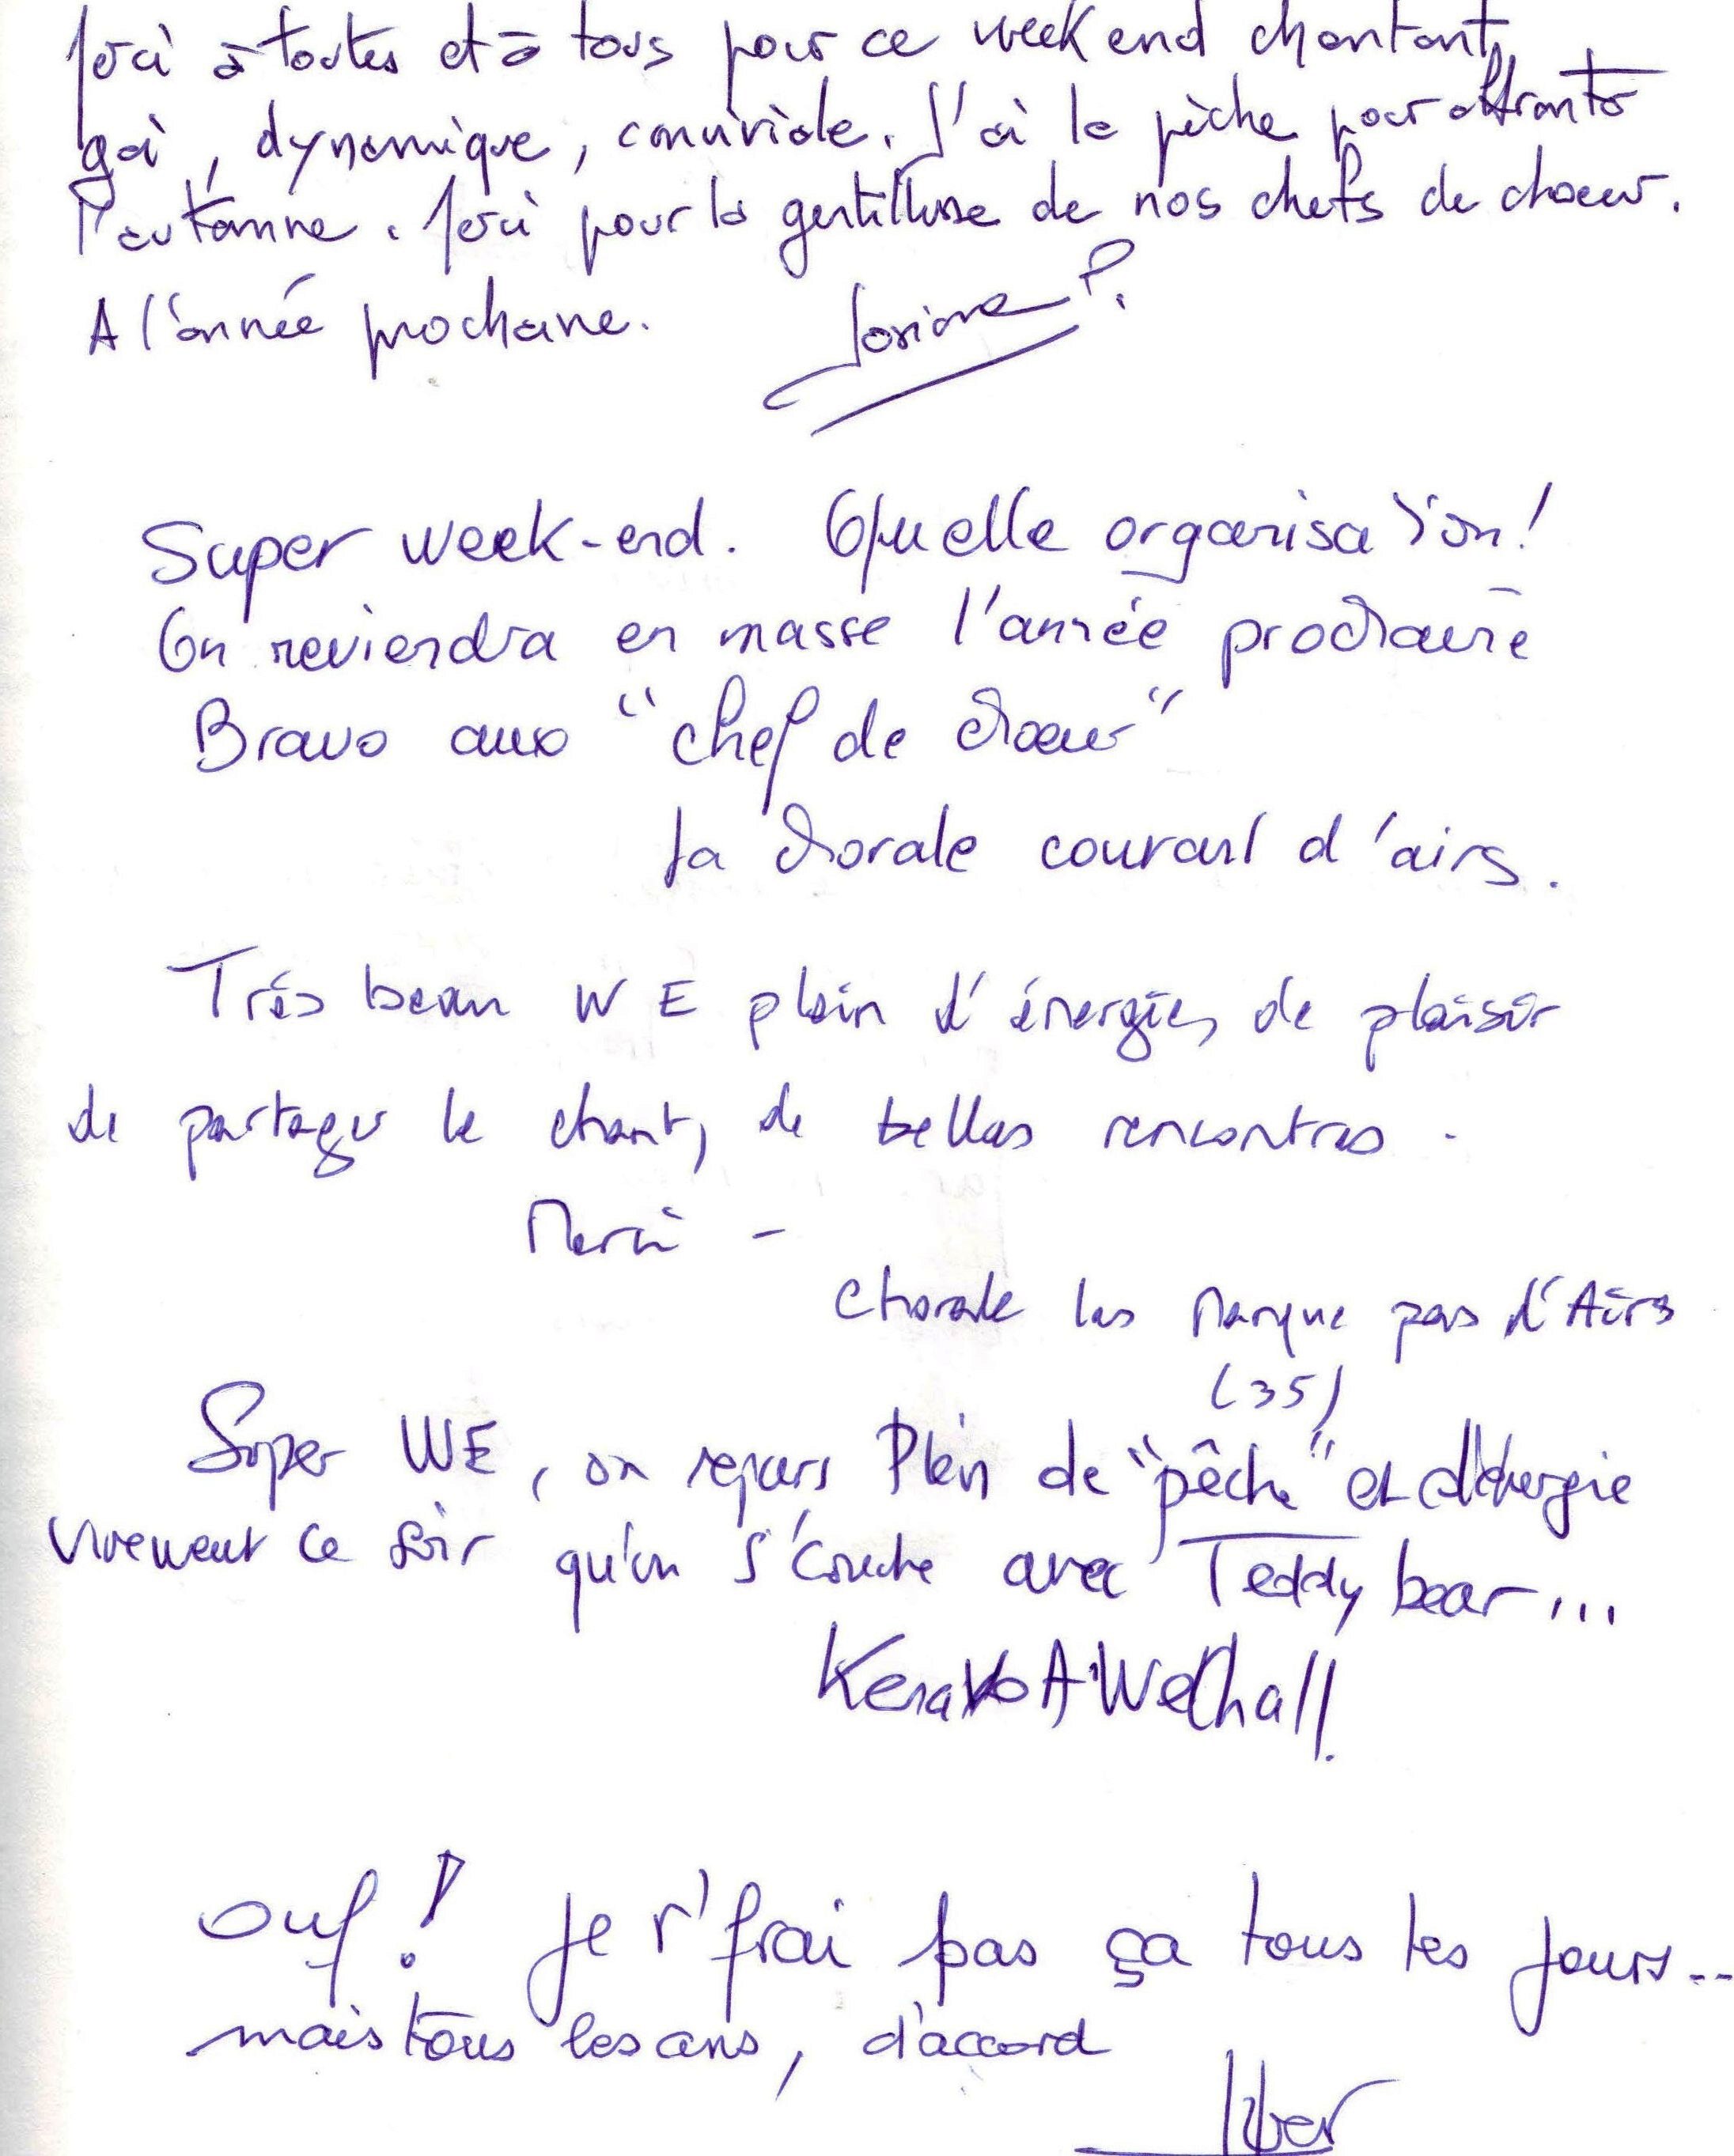 Merci à toutes et à tous pour ce week end chantant,
gai, dynamique, conviviale. J'ai la pêche pour affronter
l'automne. Merci pour la gentillesse de nos chefs de choeur.
A l'année prochaine. P.
Super week-end. Quelle organisation!
On reviendra en masse l'année prochaine
Bravo aux "chef de choeur"
La chorale courant d'airs.
Très beau WE plein d'énergies, de plaisir
de partager le chant, de belles rencontres.
Merci -
Chorale les Marque pas d'Airs
(35)
Super WE, on repars Plein de "pêche" et d'énergie
vivement ce soir qu'on s'couche avec Teddy bear...
Ouf! Je r'frai pas ça tous les jours...
mais tous les ans, d'accord